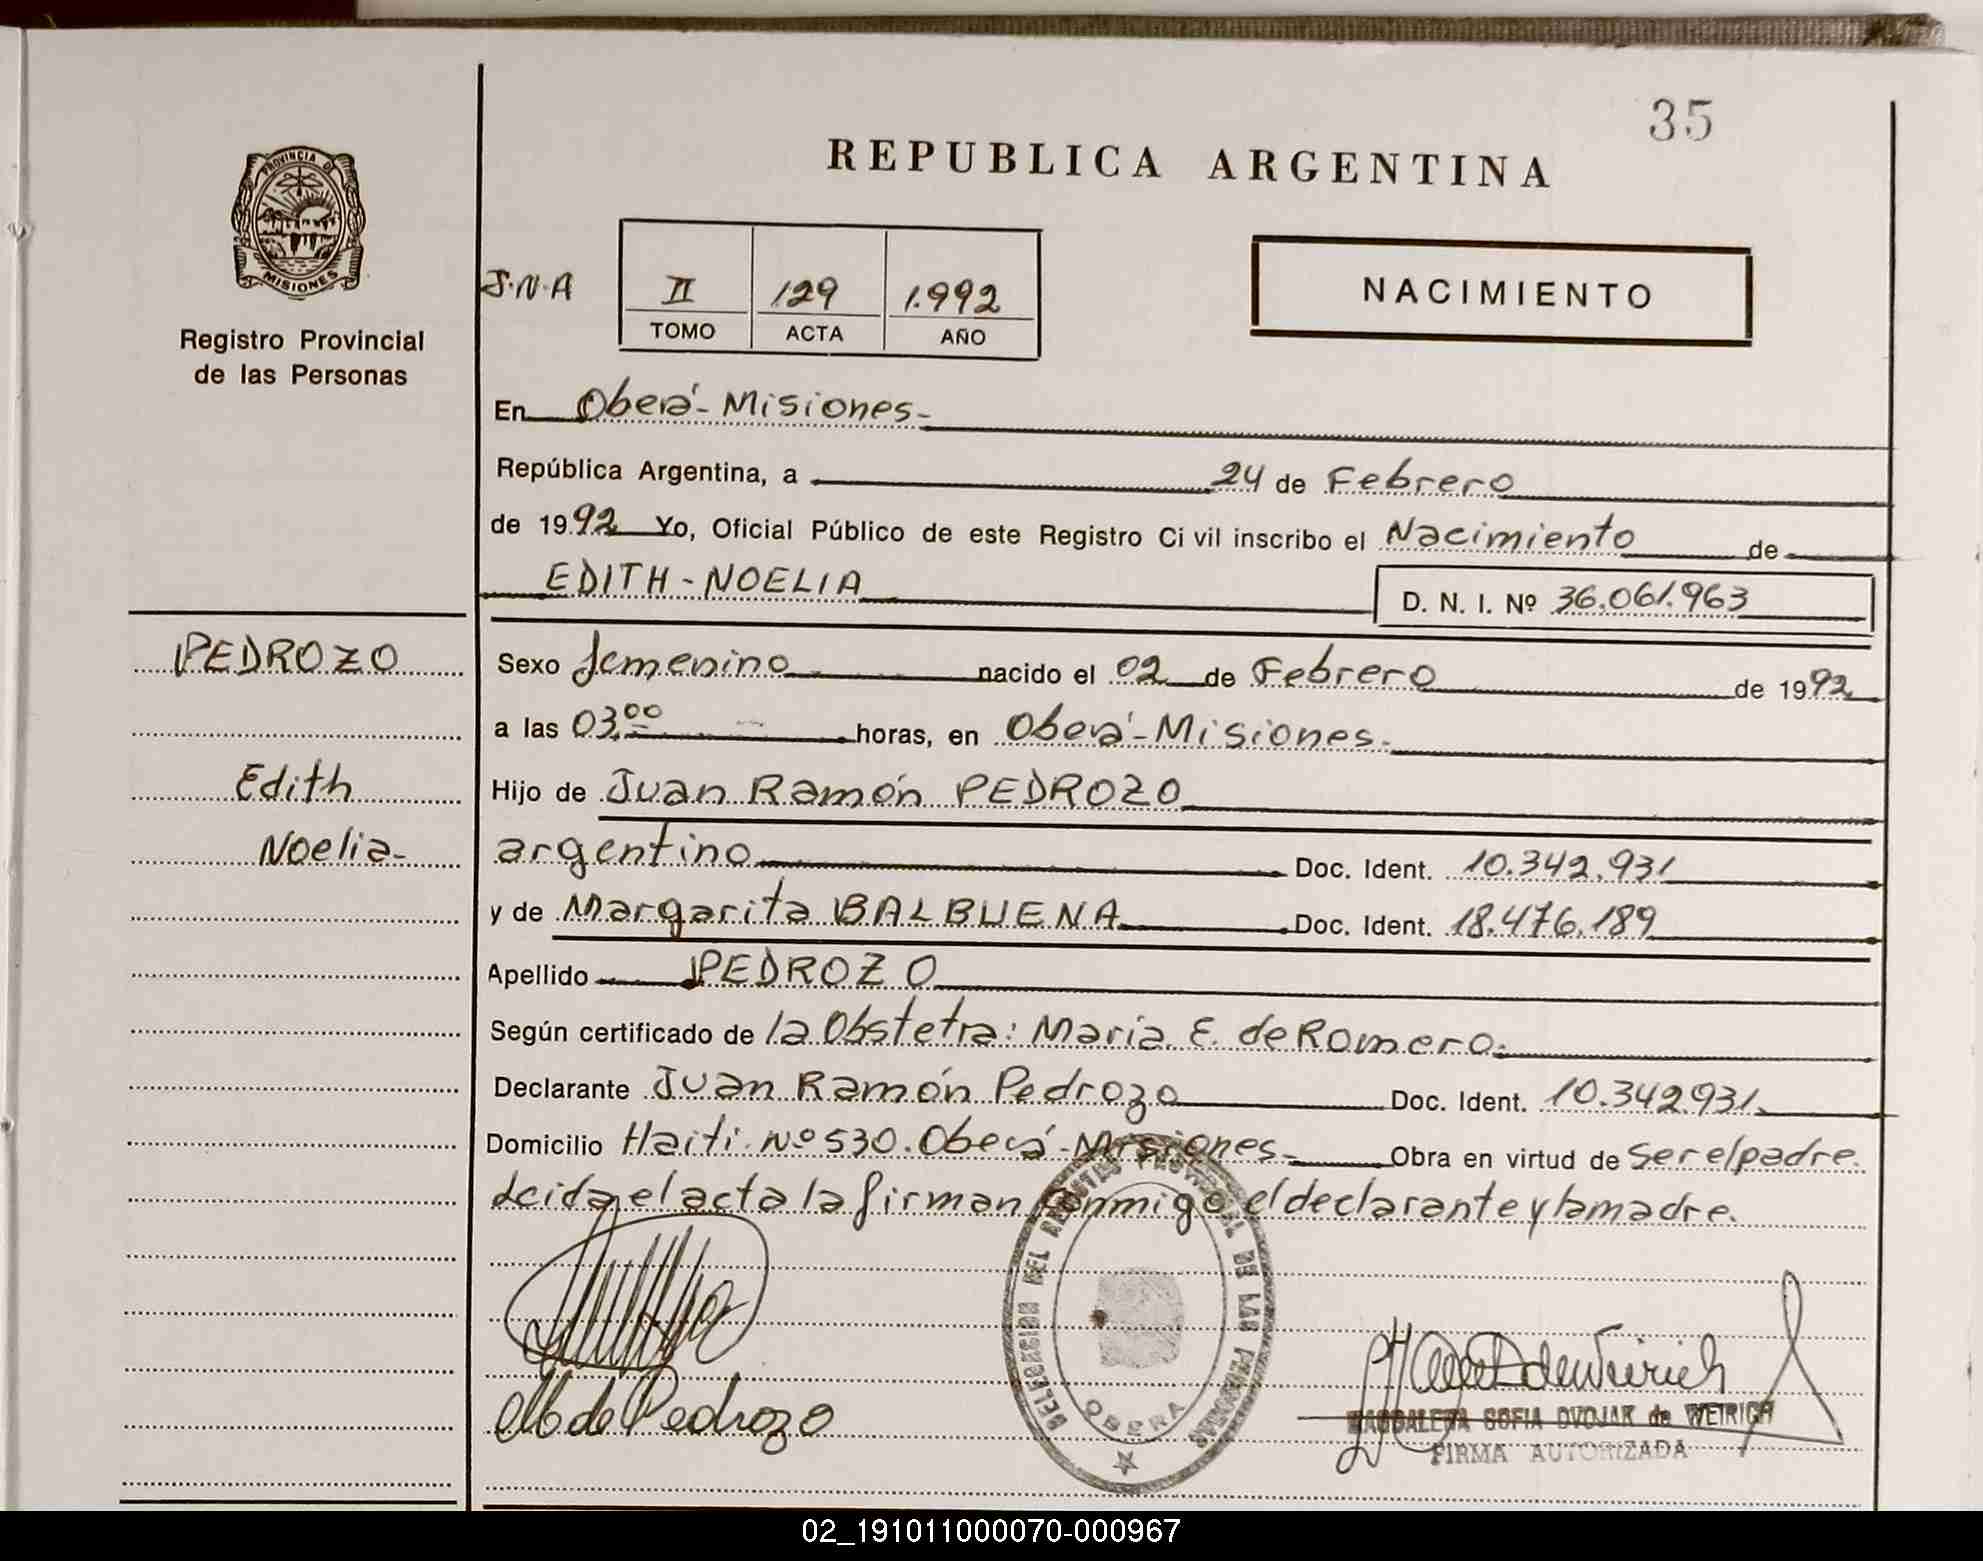 35
REPUBLICA ARGENTINA
PROVINCIA D
MISIONES
Registro Provincial
de las Personas
J.N.A
II 129 1.992
TOMO ACTA AÑO
NACIMIENTO
En Oberá - Misiones -
República Argentina, a 24 de Febrero
de 1992 Yo, Oficial Público de este Registro Civil inscribo el Nacimiento de
EDITH - NOELIA D. N. I. Nº 36.061.963
PEDROZO
Edith
Noelia -
Sexo femenino nacido el 02 de Febrero de 1992
a las 03.00 horas, en Oberá - Misiones.
Hijo de Juan Ramón PEDROZO
argentino Doc. Ident. 10.342.931
y de Margarita BALBUENA Doc. Ident. 18.476.189
Apellido PEDROZO
Según certificado de la Obstetra: María E. de Romero.
Declarante Juan Ramón Pedrozo Doc. Ident. 10.342.931.
Domicilio Haití Nº 530. Oberá - Misiones - Obra en virtud de ser el padre.
Leida el acta la firman conmigo el declarante y la madre.
DELEGACION DEL REGISTRO PROVINCIAL DE LAS PERSONAS
OBERA
MB de Pedrozo
MAGDALENA SOFIA DVOJAK de WEIRICH
FIRMA AUTORIZADA
02_191011000070-000967